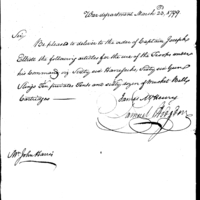 War department March 23, 1799
Sir,
Be pleased to deliver to the order of Captain Joseph
Elliott the following articles for the use of the Troops under
his Command, Sixty one Sixty one Gun
Slings Ten and sixty of Musket Ball
Cartridges
James McHenry
Samuel Hodgdon
Mr John Harris